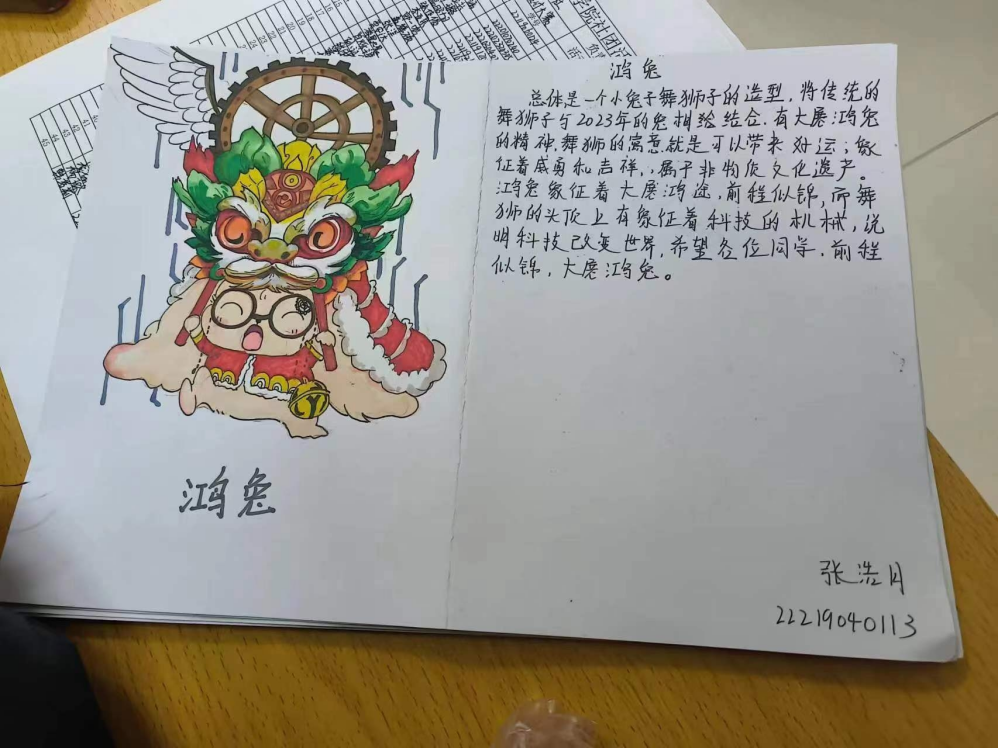 鸿兔
总体是一个小兔子舞狮子的造型,将传统的
舞狮子与2023年的兔相结合.有大展鸿兔
的精神.舞狮的寓意就是可以带来好运;象
征着威勇和吉祥,,属于非物质文化遗产。
鸿兔象征着大展鸿途,前程似锦,而舞
狮的头顶上有象征着科技的机械,说
明科技改变世界,希望各位同学.前程
似锦,大展鸿兔。
鸿兔
张浩月
22219040113
学院社团活